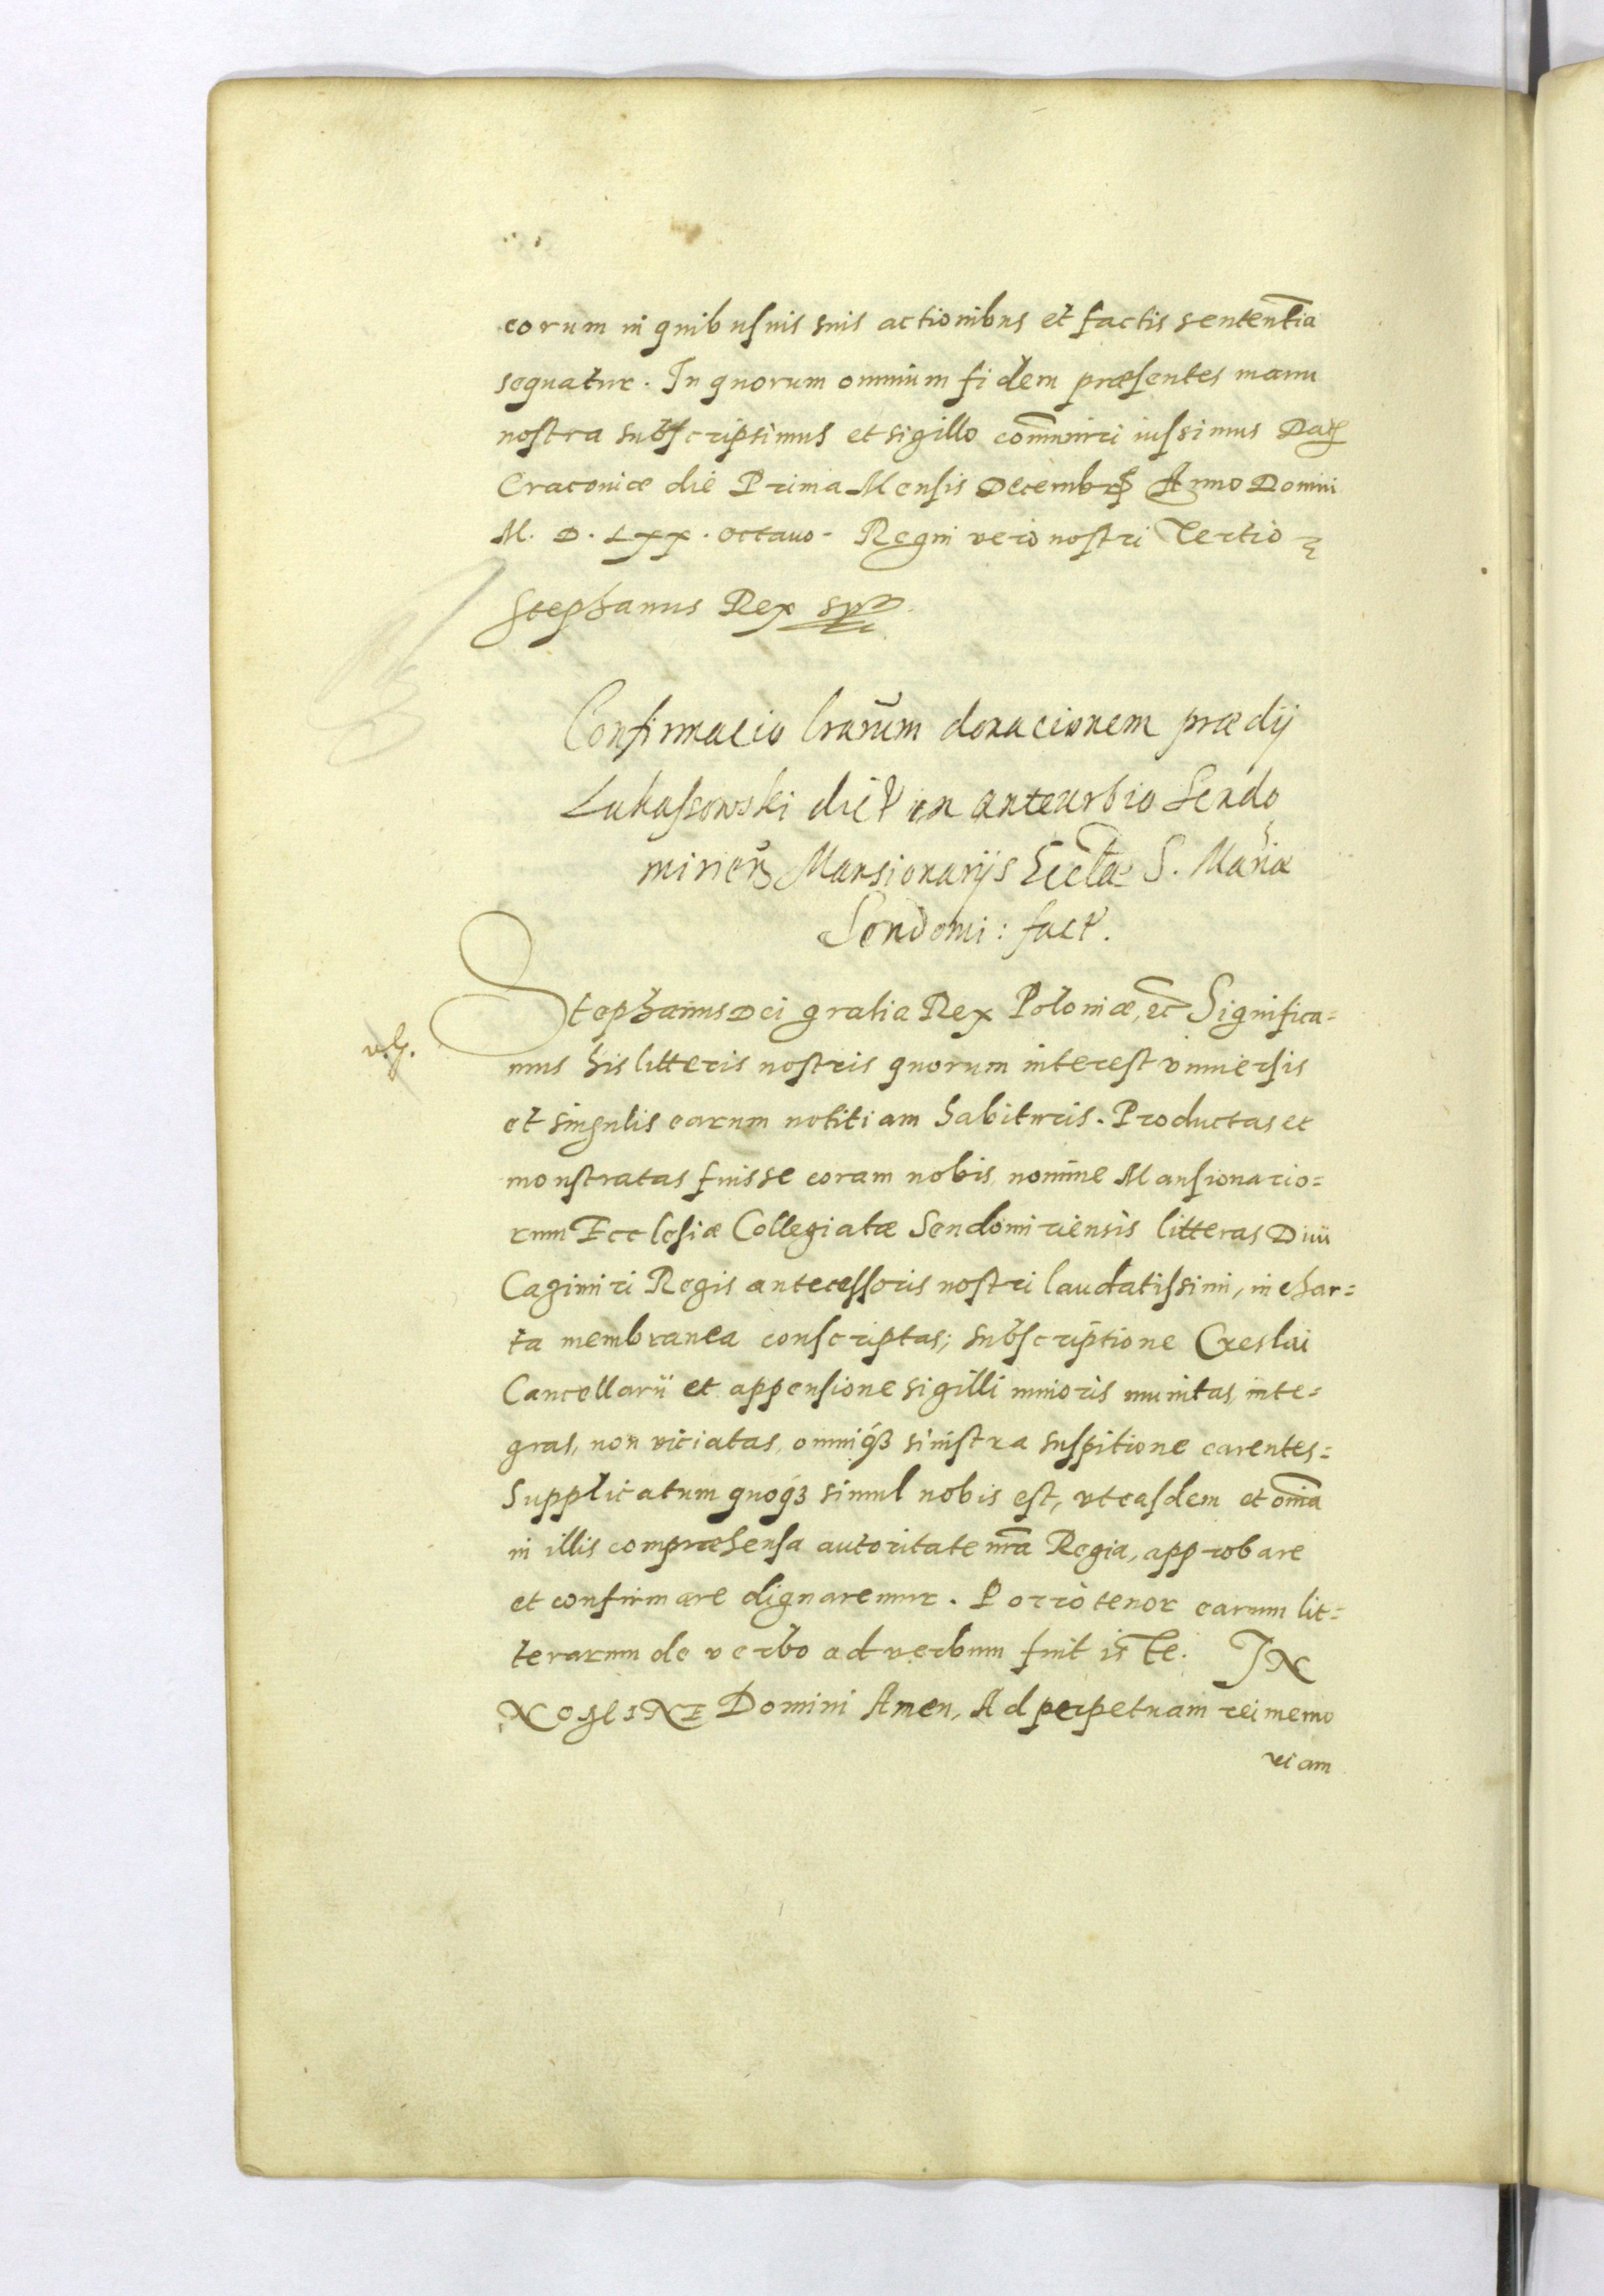 eorum in quibusuis suis actionibus et factis sententia
sequatur. In quorum omnium fidem præsentes manu
nostra subscripsimus et sigillo com̄uniri iussimus Dat
Cracoviæ die Prima Mensis Decembris Anno Domini
M. D. LXX. octauo. Regni vero nostri Tertio
Stephanus Rex
Confirmacio lrarum donacionem prædij
Lukassowski dict in anteurbio Sendo
mirien Mansionarijs Eccłæ S. Mariæ
Sendomi: fact.
Stephanus Dei gratia Rex Poloniæ, etc Significa=
mus his litteris nostris quorum interest vniuersis
et singulis earum notitiam habituris. Productas et
monstratas fuisse coram nobis nomine Mansionario=
rum Ecclesiæ Collegiatæ Sendomiriensis litteras Diui
Cazimiri Regis antecessoris nostri laudatissimi, in char=
ta membranea conscriptas; subscriptione Creslai
Cancellarii et appensione sigilli minoris munitas, inte=
gras, non viciatas, omniq3 sinistra suspitione carentes=
Supplicatum quoq3 simul nobis est, vt easdem et om̄ia
in illis compræhensa autoritate nr̄a Regia, approbare
et confirmare dignaremur. Porrò tenor earum lit=
terarum de verbo ad verbum fuit iste. IN
NOMINE Domini Amen, Ad perpetuam rei memo
riam